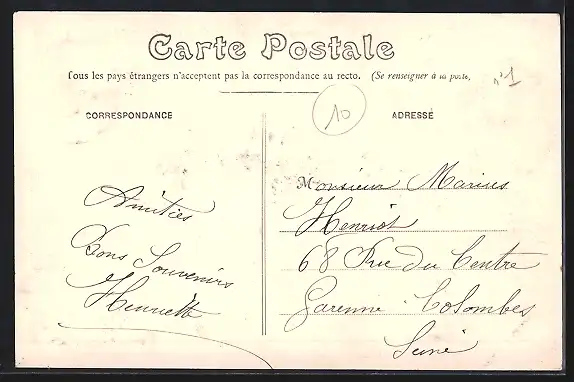 Carte Postale
Tous les pays étrangers n'acceptent pas la correspondance au recto. (Se renseigner à la poste.
n°1
10
CORRESPONDANCE
ADRESSE
Amitiés
Bons Souvenirs
Henriette
Monsieur Marius
Henriot
68 Rue du Centre
Garenne-Colombes
Seine